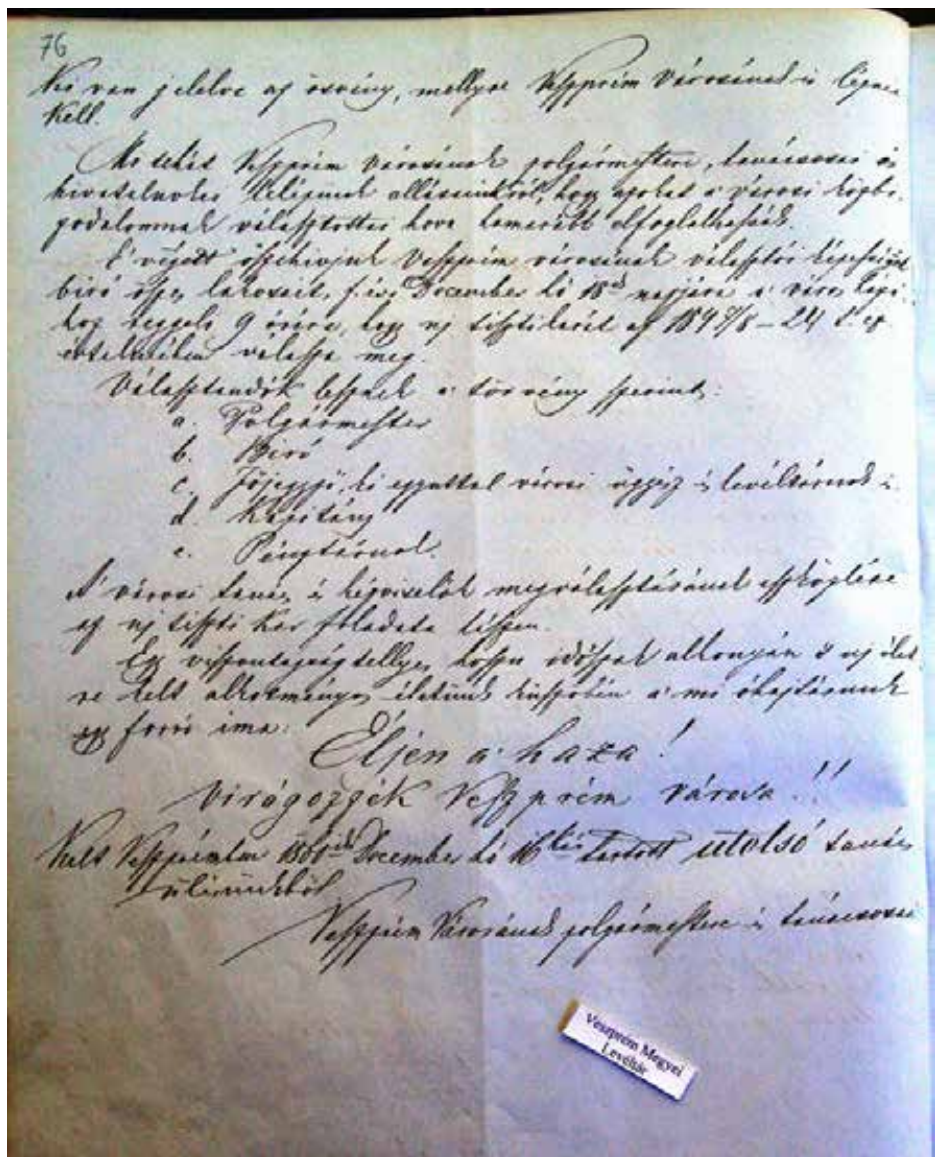 76
Ki van jelelve az ösvény, mellyre Veszprém Városának is lépnie
kell.
Mi tehát Veszprém városának polgármestere, tanácsosai és
hivatalnokai lelépünk állásainkról, hogy azokat a városi közbi-
zodalomnak választottai hova hamarább elfoglalhassák.
E végett összehivjuk Veszprém városának választói képességgel
biró össz lakosait, f. év December hó 18ik napjára a város
reggeli 9 órára, hogy uj tisztikarát az 1847/8 – 24 t. cz.
értelmében válassza meg.
Választandók lesznek a törvény szerint:
a. Polgármester
b. Biró
c. Főjegyző, ki egyuttal városi ügyész és levéltárnok is
d. Kapitány
e. Pénztárnok.
A városi tanács és képviselők megválasztásának eszközlése
az uj tiszti kar feladata lészen.
Egy viszontagságtellyes hosszu időszak alkonyán s uj élet-
re kelt alkotmányos életünk küszöbén a mi óhajtásunk
egy forró ima:
Éljen a haza!
virágozzék Veszprém városa!!
Kelt Veszprémben December hó 16kán tartott utolsó tanács
ülésünkből
Veszprém Városának polgármestere és tanácsosai
Veszprém Megyei
Levéltár